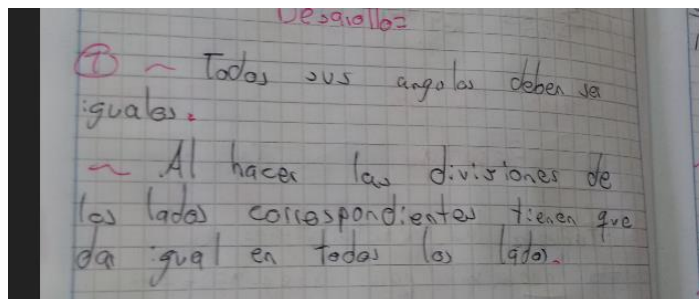 Desarollo=
① ~ Todos sus angolos deben se
iguales.
~ Al hacer las divisiones de
los lados correspondientes tienen que
da igual en todos los lados.